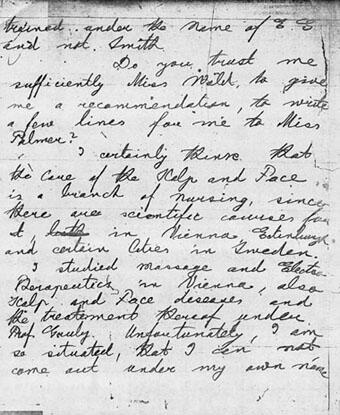 trained under the name of E E
and not Smith
Do you trust me
sufficiently Miss Wald, to give
me a recommendation, to write
a few lines for me to Miss
Palmer?
I certainly think that
the care of the Scalp and Face
is a branch of nursing, since
there are scientific courses for
it, both in Vienna Edinburgh
and certain Cities in Sweden
I studied massage and Electro
Therapeutics in Vienna, also
Scalp and Face diseases and
the treatement thereof under
Prof. Unfortunately, I am
so situated, that I can not
come out under my own name